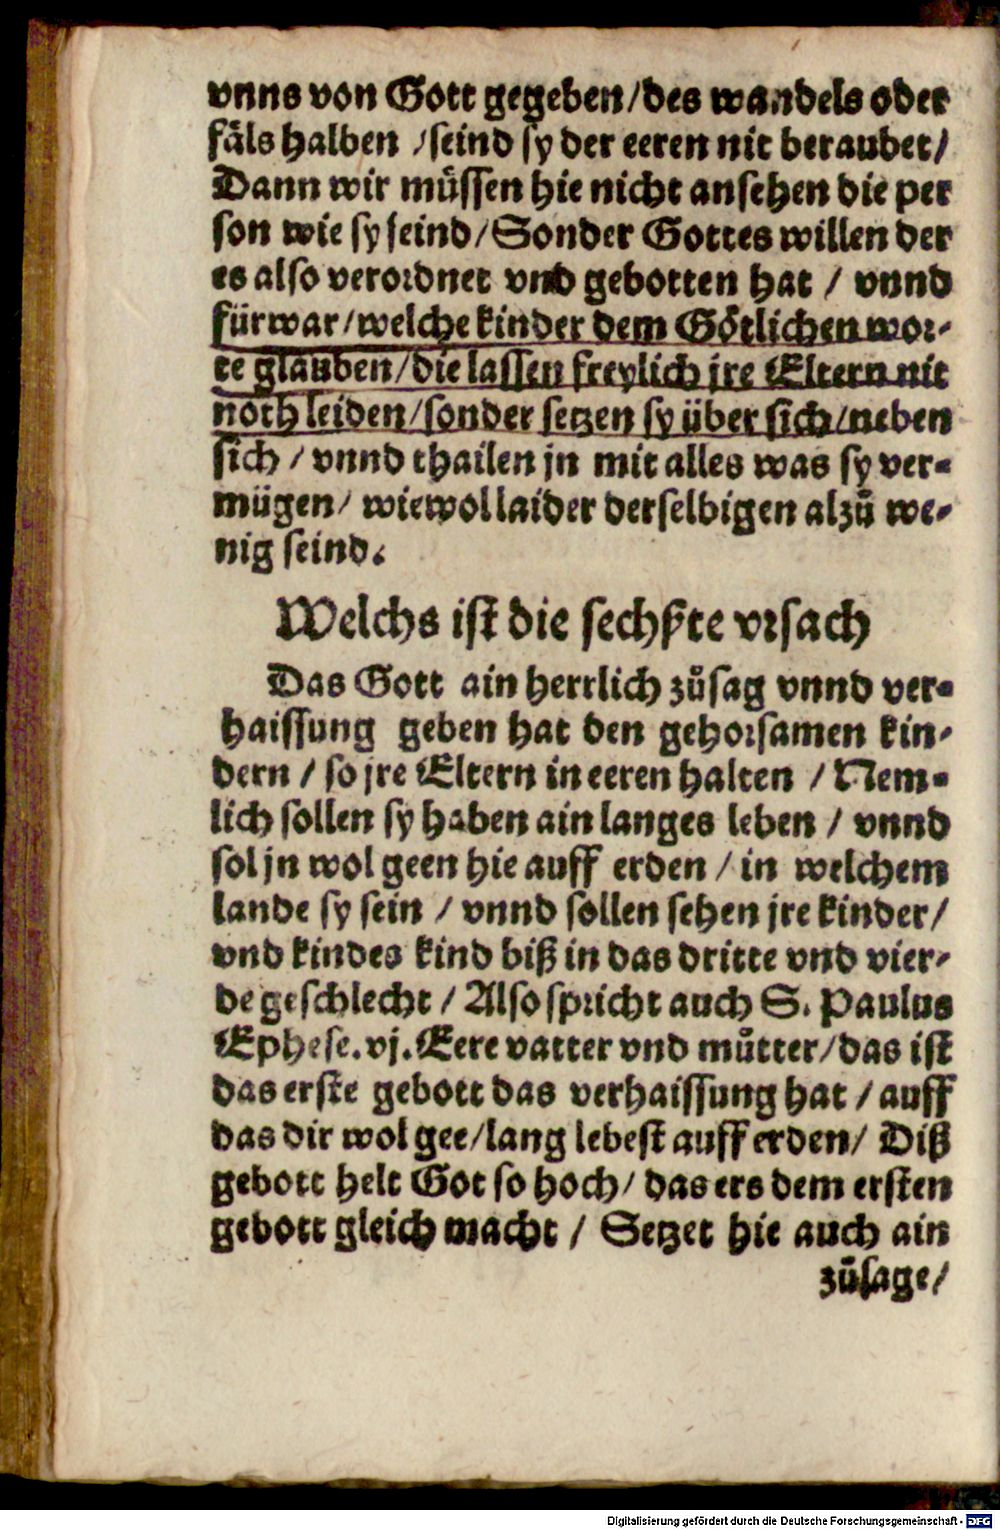 vnns von Gott gegeben/des wandels oder
fäls halben /seind sy der eeren nit beraubet/
Dann wir müssen hie nicht ansehen die per
son wie sy seind/Sonder Gottes willen der
es also verordnet vnd gebotten hat / vnnd
fürwar/welche kinder dem Götlichen wor-
te glauben/die lassen freylich jre Eltern nit
noth leiden/sonder setzen sy über sich/neben
sich / vnnd thailen jn mit alles was sy ver-
mügen/ wiewol laider derselbigen alzů we-
nig seind.
Welchs ist die sechßte vrsach
Das Gott ain herrlich zůsag vnnd ver-
haissung geben hat den gehorsamen kin-
dern / so jre Eltern in eeren halten / Nem-
lich sollen sy haben ain langes leben / vnnd
sol jn wol geen hie auff erden / in welchem
lande sy sein / vnnd sollen sehen jre kinder/
vnd kindes kind biß in das dritte vnd vier-
de geschlecht / Also spricht auch S. Paulus
Ephese.vj. Eere vatter vnd můtter/das ist
das erste gebott das verhaissung hat / auff
das dir wol gee/lang lebest auff erden/ Diß
gebott helt Got so hoch/ das ers dem ersten
gebott gleich macht / Setzet hie auch ain
zůsage/
Digitalisierung gefördert durch die Deutsche Forschungsgemeinschaft - DFG